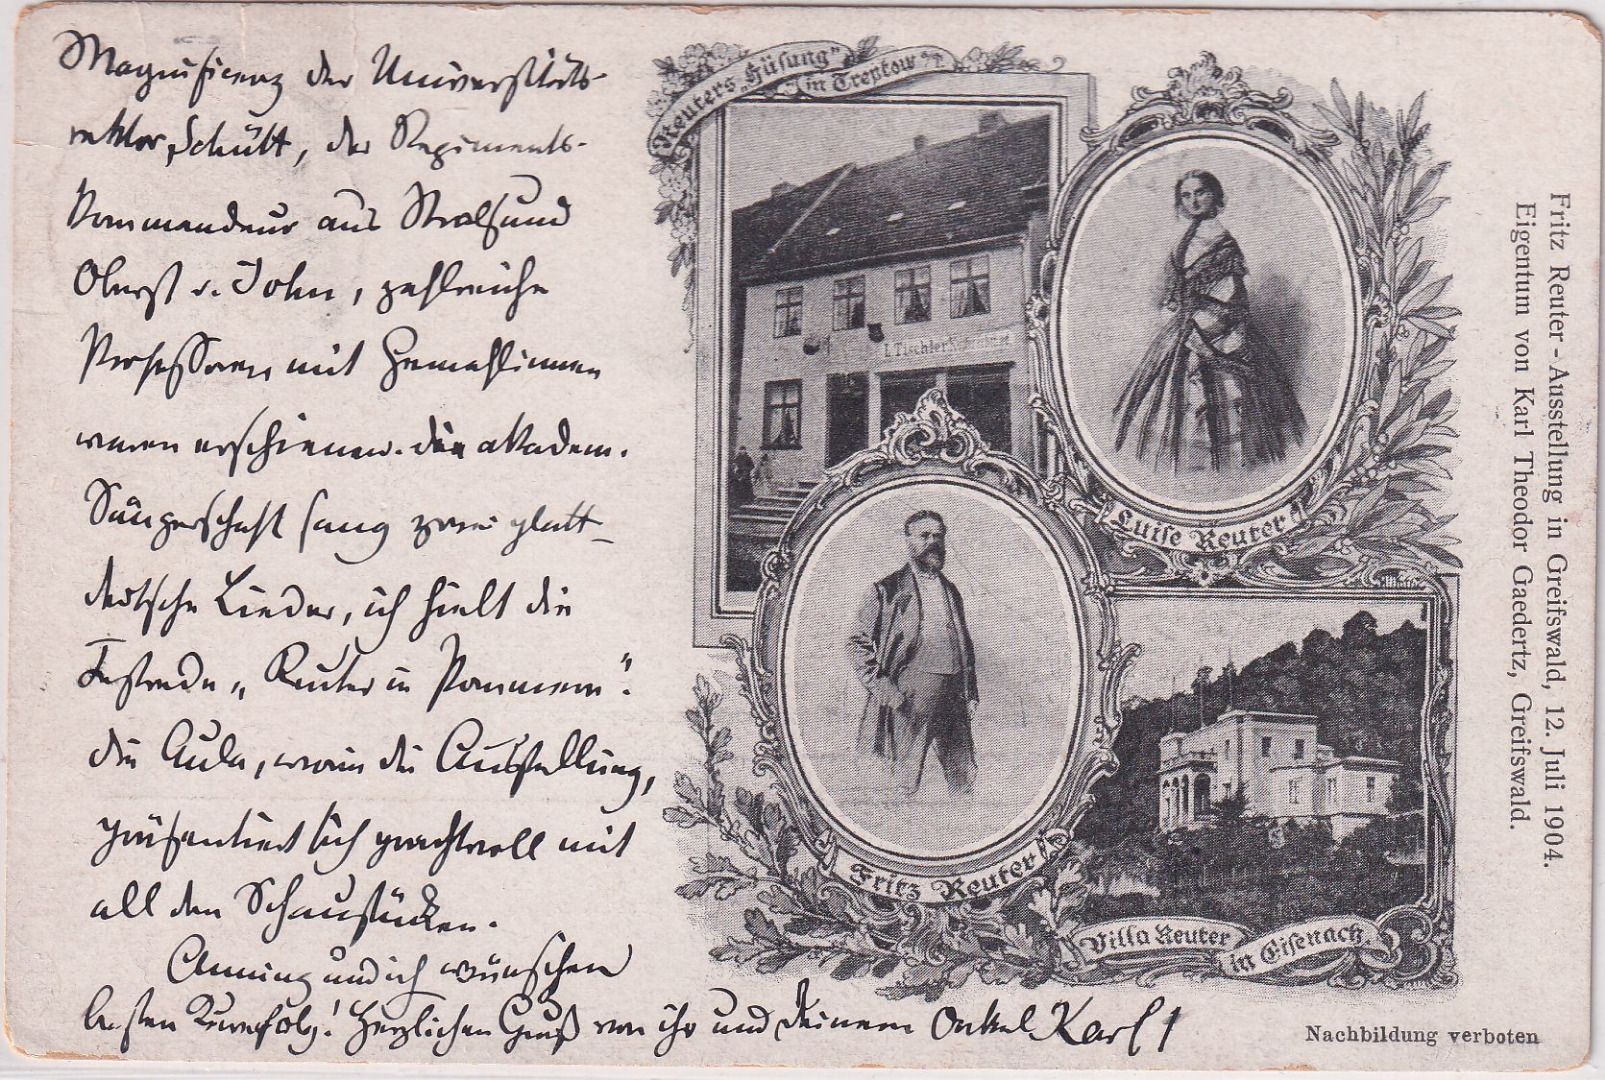 Magnificenz der Universitäts-
rektor Schütt, der Regiments-
Kommandeur aus Stralsund
Oberst v. John, zahlreiche
Professoren mit Gemahlinnen
waren erschienen. Die akadem.
Sängerschaft sang zwei platt-
deutsche Lieder, ich hielt die
Festrede „Reuter in Pommern“.
Die Aula, worin die Ausstellung,
präsentiert sich prachtvoll mit
all den Schaustücken.
Änning und ich wünschen
besten Kurerfolg! Herzlichen Gruß von ihr und Deinem Onkel Karl
Reuters „Hüsung“
in Treptow a/T.
I. Tischler
Luise Reuter
Fritz Reuter
Villa Reuter
in Eisenach.
Fritz Reuter-Ausstellung in Greifswald, 12. Juli 1904.
Eigentum von Karl Theodor Gaedertz, Greifswald.
Nachbildung verboten